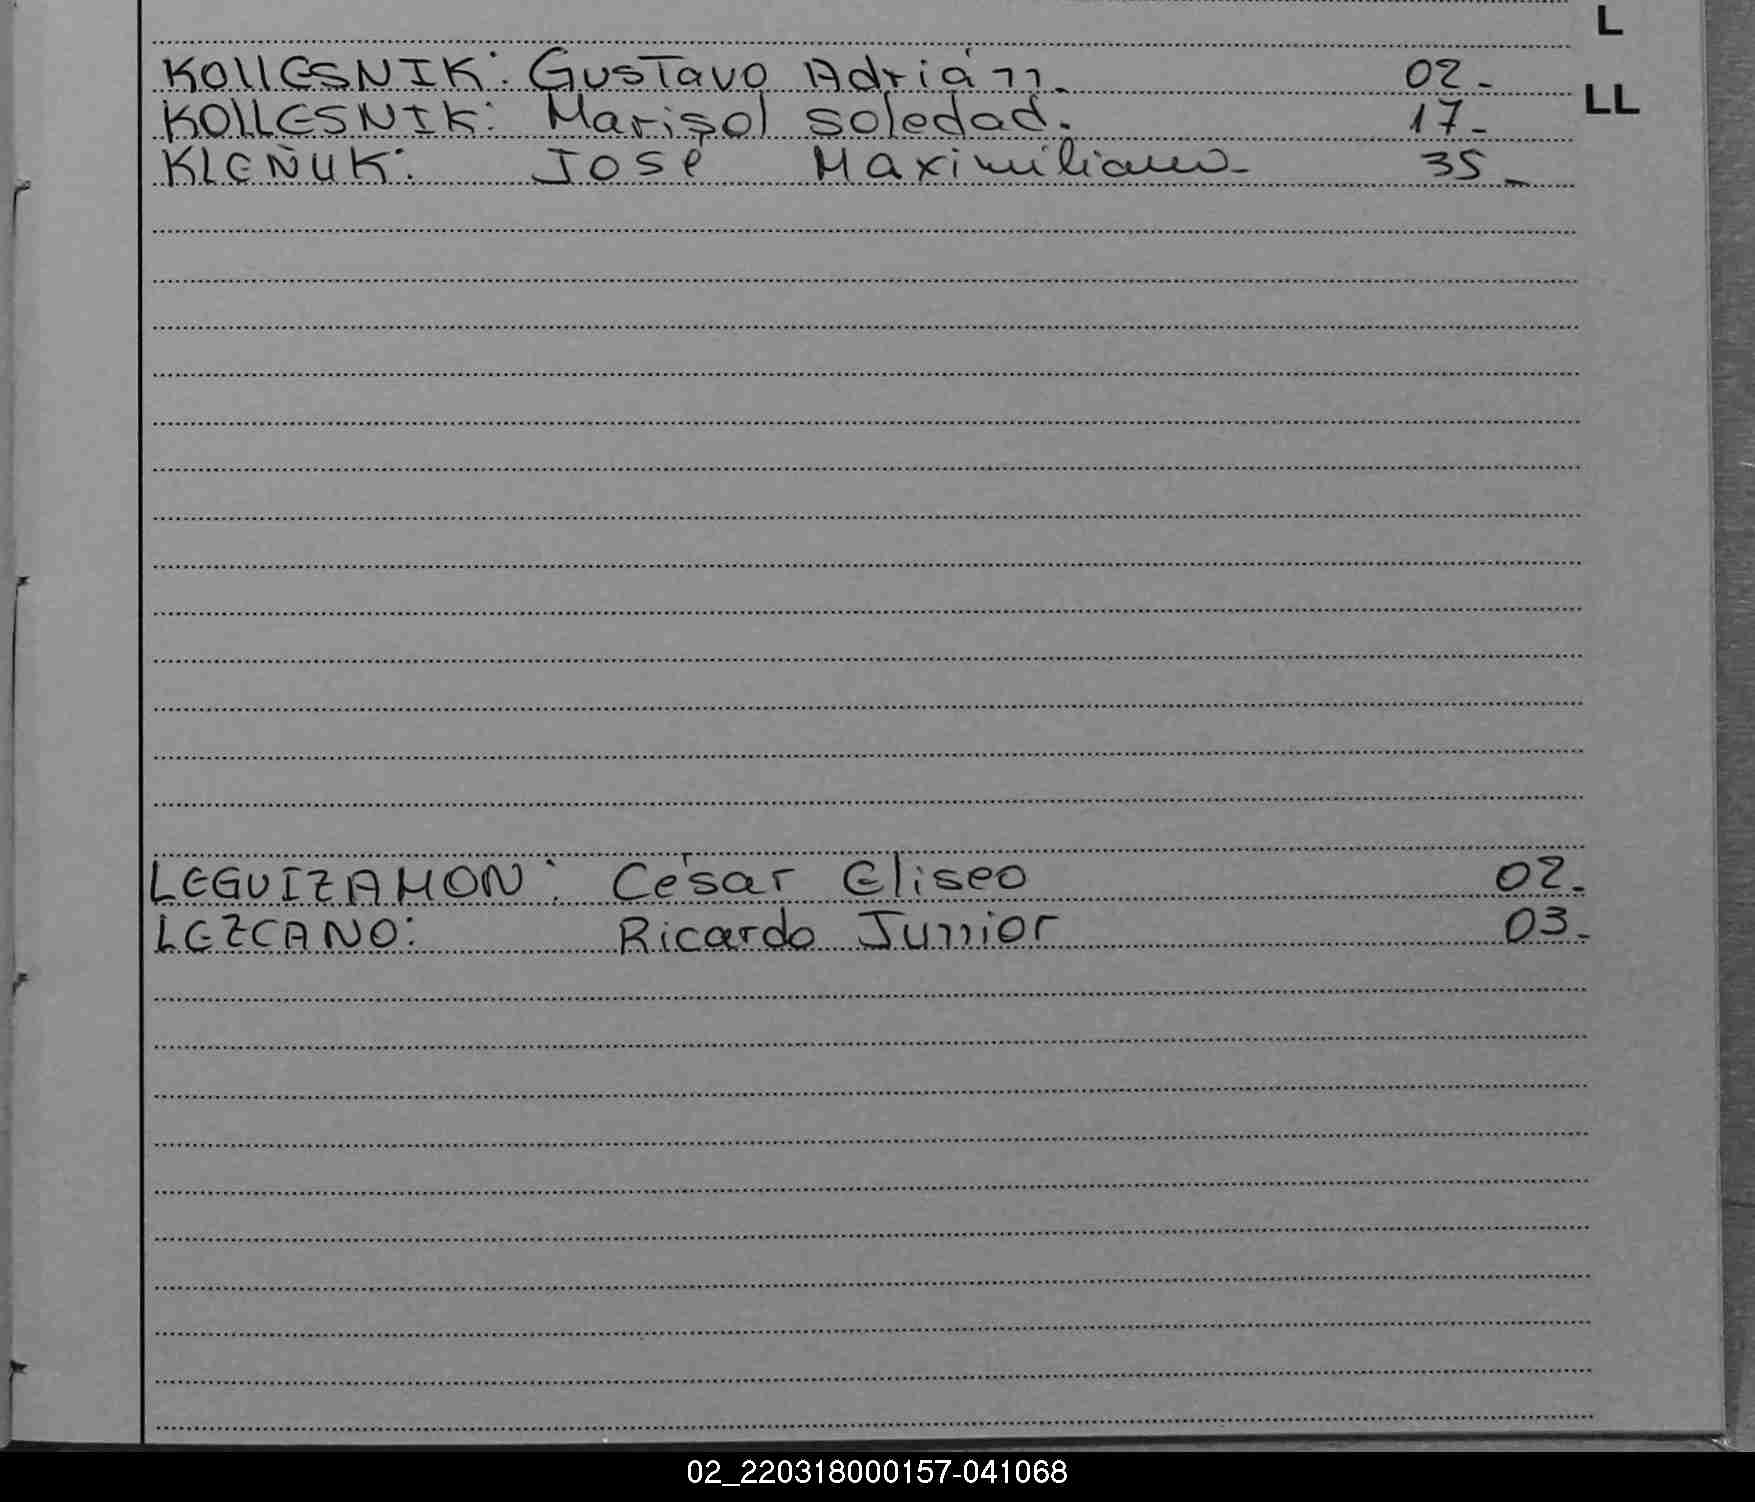 L
KOLLESNIK: Gustavo Adrián. 02.-
LL
KOLLESNIK: Marisol soledad. 17.-
KLEÑUK: José Maximiliano- 35-
LEGUIZAMON: César Eliseo 02.-
LEZCANO: Ricardo Junior 03.-
02_220318000157-041068